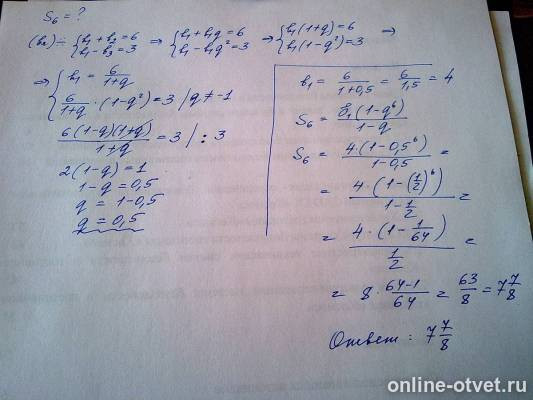 S₆ = ?
(bₙ) ÷ { b₁ + b₂ = 6 ; b₁ - b₃ = 3 ⇒ { b₁ + b₁q = 6 ; b₁ - b₁q² = 3 ⇒ { b₁(1+q) = 6 ; b₁(1-q²) = 3 ⇒
⇒ { b₁ = 6/(1+q) ; 6/(1+q) · (1-q²) = 3 / q ≠ -1
6(1-q)(1+q)/(1+q) = 3 / : 3
2(1-q) = 1
1-q = 0,5
q = 1-0,5
q = 0,5
b₁ = 6/(1+0,5) = 6/1,5 = 4
S₆ = b₁(1-q⁶)/(1-q)
S₆ = 4·(1-0,5⁶)/(1-0,5) =
= 4·(1-(1/2)⁶)/(1-1/2) =
= 4·(1-1/64)/(1/2) =
= 8 · (64-1)/64 = 63/8 = 7 7/8
Ответ: 7 7/8
online-otvet.ru